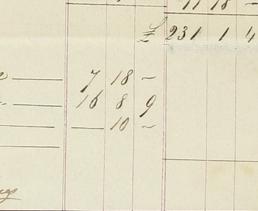 11 18 —
£ 231 1 4
7 18 —
16 8 9
— 10 —